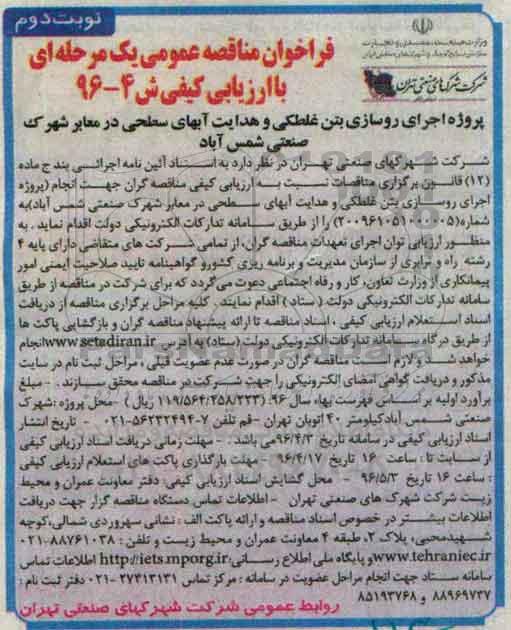 نوبت دوم
وزارت صنعت، معدن و تجارت
شرکت شهرکهای صنعتی تهران
فراخوان مناقصه عمومی یک مرحله ای
با ارزیابی کیفی ش ۴-۹۶
پروژه اجرای روسازی بتن غلطکی و هدایت آبهای سطحی در معابر شهرک
صنعتی شمس آباد
شرکت شهرکهای صنعتی تهران در نظر دارد به استناد آئین نامه اجرائی بند ج ماده
(۱۲) قانون برگزاری مناقصات نسبت به ارزیابی کیفی مناقصه گران جهت انجام (پروژه
اجرای روسازی بتن غلطکی و هدایت آبهای سطحی در معابر شهرک صنعتی شمس آباد)به
شماره(۲۰۰۹۶۱۰۵۱۰۰۰۰۰۵) را از طریق سامانه تدارکات الکترونیکی دولت اقدام نماید . به
منظور ارزیابی توان اجرای تعهدات مناقصه گران، از تمامی شرکت های متقاضی دارای پایه ۴
رشته راه و ترابری از سازمان مدیریت و برنامه ریزی کشورو گواهینامه تایید صلاحیت ایمنی امور
پیمانکاری از وزارت تعاون، کار و رفاه اجتماعی دعوت می گردد که برای شرکت در مناقصه از طریق
سامانه تدارکات الکترونیکی دولت ( ستاد ) اقدام نمایند . کلیه مراحل برگزاری مناقصه از دریافت
اسناد استعلام ارزیابی کیفی ، اسناد مناقصه تا ارائه پیشنهاد مناقصه گران و بازگشایی پاکت ها
از طریق درگاه سامانه تدارکات الکترونیکی دولت (ستاد) به آدرس www.setadiran.ir انجام
خواهد شد و لازم است مناقصه گران در صورت عدم عضویت قبلی ، مراحل ثبت نام در سایت
مذکور و دریافت گواهی امضای الکترونیکی را جهت شرکت در مناقصه محقق سازند . - مبلغ
برآورد اولیه بر اساس فهرست بهاء سال ۹۶: (۱۱۹/۵۶۴/۴۵۸/۲۲۳ ریال ) -محل پروژه :شهرک
صنعتی شمس آبادکیلومتر ۴۰ اتوبان تهران -قم تلفن ۷-۵۶۲۳۲۴۹۴-۰۲۱ - تاریخ انتشار
اسناد ارزیابی کیفی در سامانه تاریخ ۹۶/۴/۳می باشد. - مهلت زمانی دریافت اسناد ارزیابی کیفی
از سایت تا : ساعت ۱۶ تاریخ ۹۶/۴/۱۷ -مهلت بارگذاری پاکت های استعلام ارزیابی کیفی
: ساعت ۱۶ تاریخ ۹۶/۵/۳ - محل گشایش اسناد ارزیابی کیفی: دفتر معاونت عمران و محیط
زیست شرکت شهرک های صنعتی تهران - اطلاعات تماس دستگاه مناقصه گزار جهت دریافت
اطلاعات بیشتر در خصوص اسناد مناقصه و ارائه پاکت الف : نشانی سهروردی شمالی،کوچه
شهیدمحبی، پلاک ۲، طبقه ۴ معاونت عمران و محیط زیست و تلفن : ۸۸۷۶۱۰۳۸-۰۲۱
www.tehraniec.ir و پایگاه ملی اطلاع رسانی:http://iets.mporg.ir اطلاعات تماس
سامانه ستاد جهت انجام مراحل عضویت در سامانه : مرکز تماس ۲۷۳۱۳۱۳۱-۰۲۱ دفتر ثبت نام :
۸۸۹۶۹۷۳۷ و ۸۵۱۹۳۷۶۸
روابط عمومی شرکت شهرکهای صنعتی تهران